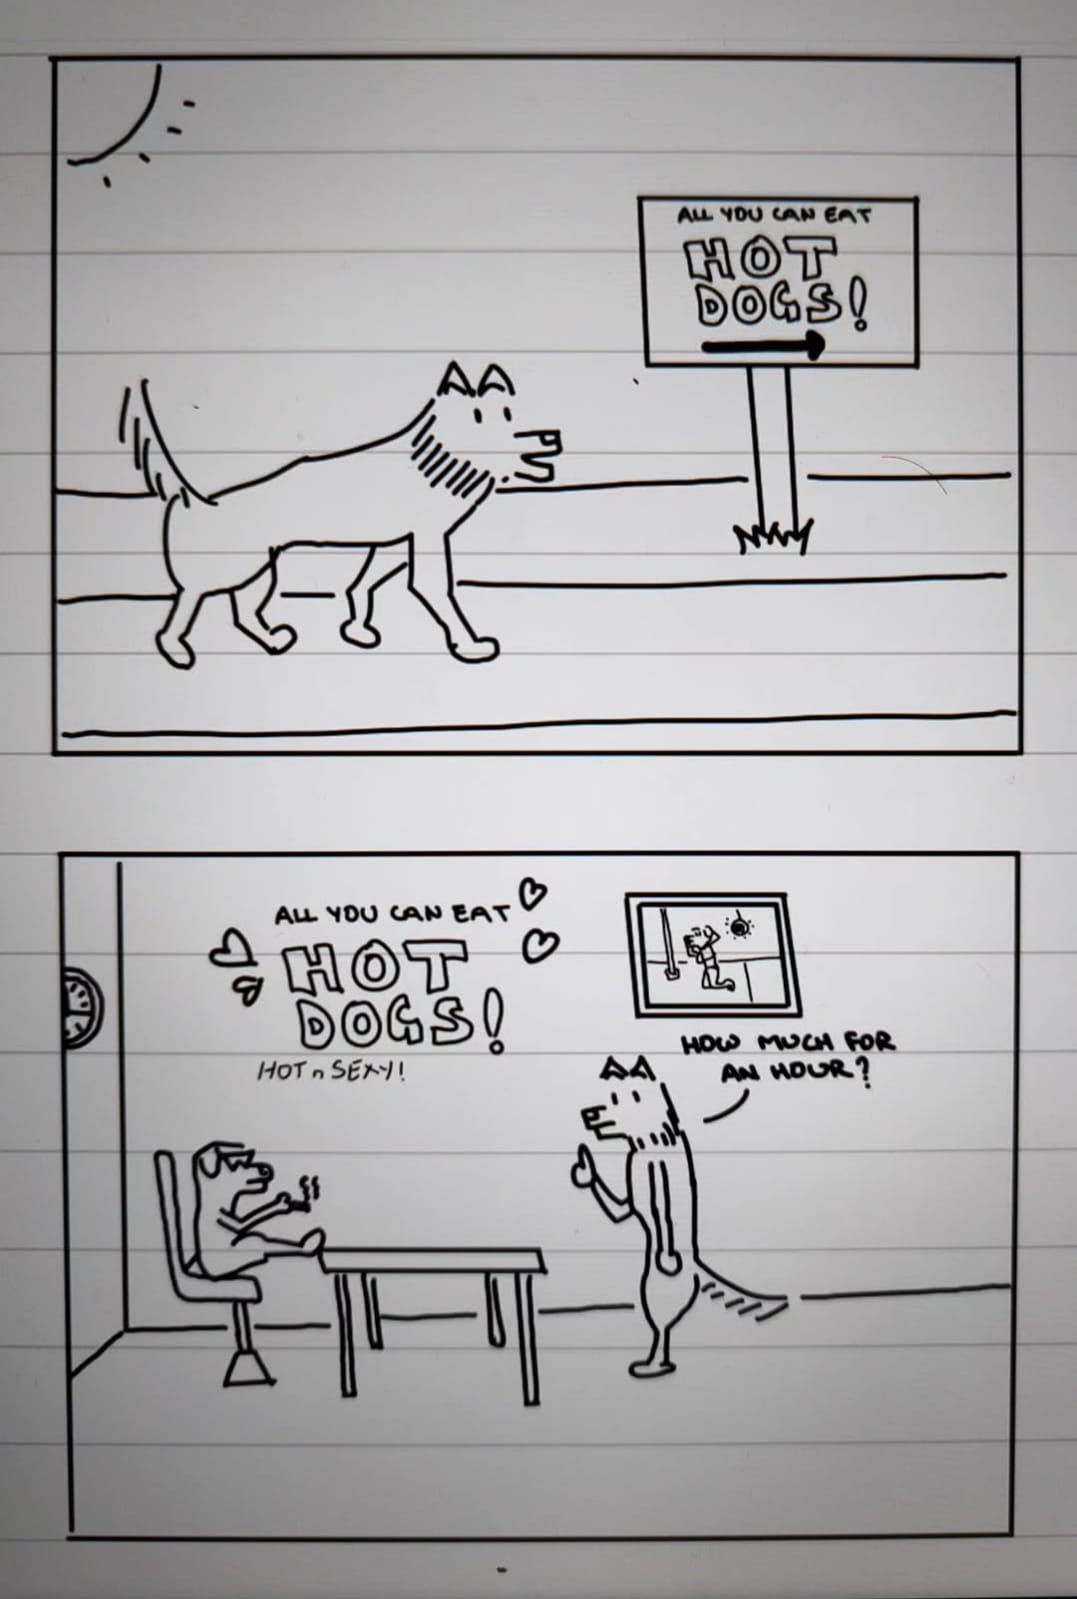 ALL YOU CAN EAT
HOT
DOGS!
ALL YOU CAN EAT
HOT
DOGS!
HOT n SEXY!
HOW MUCH FOR
AN HOUR?